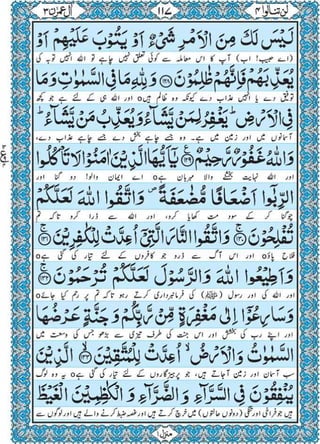 لن تنالوا ۴ ۱۱۷ اٰل عمرٰن ۳
لَیْسَ لَكَ مِنَ الْاَمْرِ شَیْءٌ اَوْ یَتُوْبَ عَلَیْهِمْ اَوْ
(اے حبیب! اب) آپ کا اس معاملہ سے کوئی تعلق نہیں چاہے تو اللہ انہیں توبہ کی
یُعَذِّبَهُمْ فَاِنَّهُمْ ظٰلِمُوْنَ ﴿۱۲۸﴾ وَ لِلّٰهِ مَا فِی السَّمٰوٰتِ وَ مَا
توفیق دے یا انہیں عذاب دے کیونکہ وہ ظالم ہیں o اور اللہ ہی کے لئے ہے جو کچھ
فِی الْاَرْضِ ؕ یَغْفِرُ لِمَنْ یَّشَآءُ وَ یُعَذِّبُ مَنْ یَّشَآءُ ؕ
آسمانوں میں اور زمین میں ہے۔ وہ جسے چاہے بخش دے جسے چاہے عذاب دے،
وَ اللّٰهُ غَفُوْرٌ رَّحِیْمٌ ﴿۱۲۹﴾ یٰۤاَیُّهَا الَّذِیْنَ اٰمَنُوْا لَا تَاْكُلُوا
اور اللہ نہایت بخشنے والا مہربان ہے o اے ایمان والو! دو گنا اور
الرِّبٰۤوا اَضْعَافًا مُّضٰعَفَةً ۪ وَّ اتَّقُوا اللّٰهَ لَعَلَّكُمْ
چوگنا کر کے سود مت کھایا کرو، اور اللہ سے ڈرا کرو تاکہ تم
تُفْلِحُوْنَ ﴿۱۳۰﴾ وَ اتَّقُوا النَّارَ الَّتِیْۤ اُعِدَّتْ لِلْكٰفِرِیْنَ ﴿۱۳۱﴾
فلاح پاؤ o اور اس آگ سے ڈرو جو کافروں کے لئے تیار کی گئی ہے o
وَ اَطِیْعُوا اللّٰهَ وَ الرَّسُوْلَ لَعَلَّكُمْ تُرْحَمُوْنَ ﴿۱۳۲﴾
اور اللہ کی اور رسول (ﷺ) کی فرمانبرداری کرتے رہو تاکہ تم پر رحم کیا جائے o
وَ سَارِعُوْۤا اِلٰی مَغْفِرَةٍ مِّنْ رَّبِّكُمْ وَ جَنَّةٍ عَرْضُهَا
اور اپنے رب کی بخشش اور اس جنت کی طرف تیزی سے بڑھو جس کی وسعت میں
السَّمٰوٰتُ وَ الْاَرْضُ ۙ اُعِدَّتْ لِلْمُتَّقِیْنَ ﴿۱۳۳﴾ الَّذِیْنَ
سب آسمان اور زمین آ جاتے ہیں، جو پرہیزگاروں کے لئے تیار کی گئی ہے o یہ وہ لوگ
یُنْفِقُوْنَ فِی السَّرَّآءِ وَ الضَّرَّآءِ وَ الْكٰظِمِیْنَ الْغَیْظَ
ہیں جو فراخی اور تنگی (دونوں حالتوں) میں خرچ کرتے ہیں اور غصہ ضبط کرنے والے ہیں اور لوگوں سے
منزل ۱